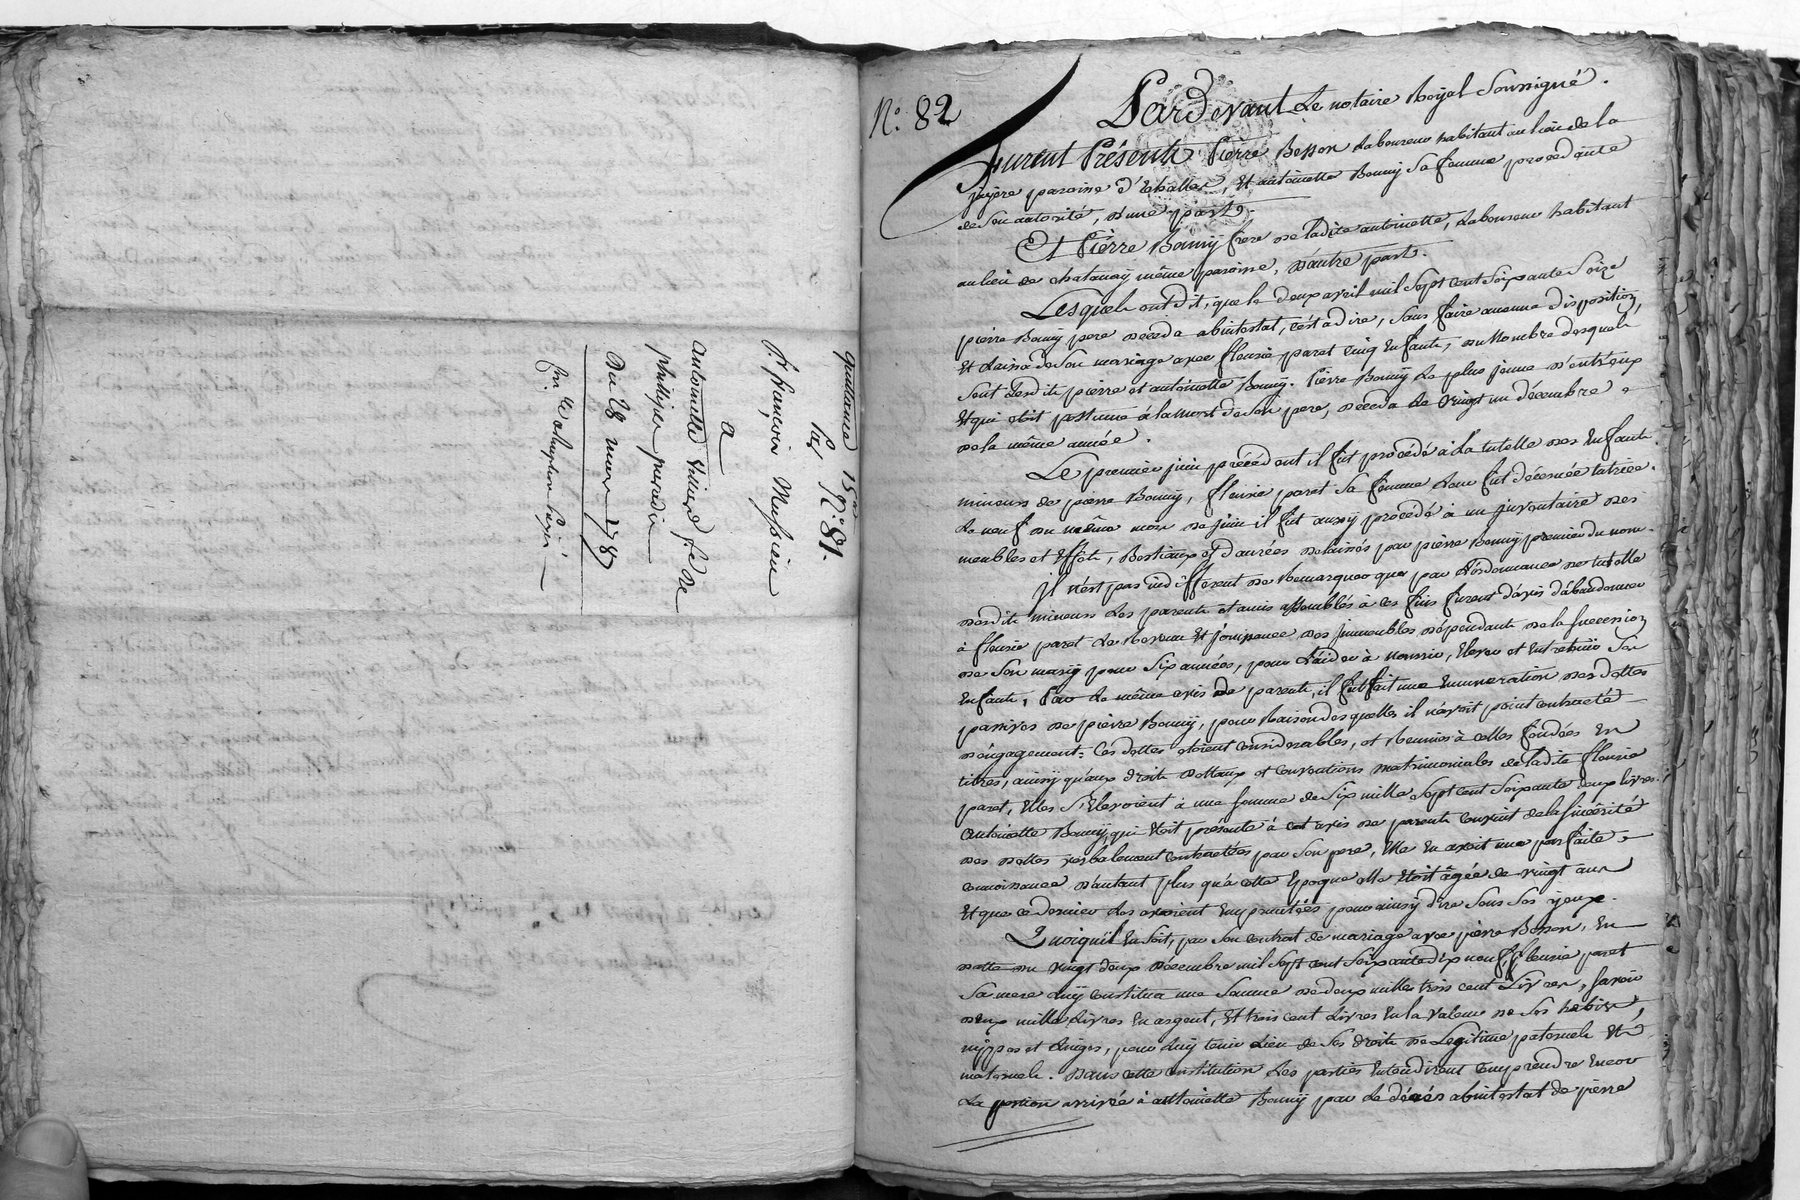 quittance 15 #
N.o 81.
Par
Sr. françois Mussieu
a
antoinette thivend fe. de
phillipe peradin
du 28 mars 1787
N.o 82
Pardevant Le notaire Royal Soussigné.
furent Présents Pierre Besson Laboureur habitant au lieu de la
juyère paroisse d'Echallas, Et antoinette Bonny Sa femme procédante
de Son autorité, d'une part.
Et Pierre Bonnÿ frere de ladite antoinette, Laboureur habitant
au lieu de chatanaÿ même paroisse, d'autre part.
Lesquels ont dit, que le deux avril mil Sept cent Soixante Seize
pierre Bonnÿ pere déceda abintestat, c'est a dire, Sans faire aucune disposition,
Et Laissa de Son mariage avec fleurie paret cinq Enfants, du Nombre desquels
Sont Lesdits pierre et antoinette Bonnÿ. Pierre Bonnÿ Le plus jeune d'entr'eux
Et qui étoit postume à la mort de Son pere, déceda Le Vingt un décembre
de la même année.
Le premier juin précédent il fut procédé à La tutelle des Enfants
mineurs de pierre Bonnÿ, fleurie paret Sa femme Leur fut décernée tutrice.
Le neuf du même mois de juin il fut aussÿ procédé à un jnventaire des
meubles et Effets, Bestiaux et danrées délaissés par pierre Bonnÿ premier du nom.
Jl n'est pas indifferent de Remarquer que par L'ordonnance de tutelle
desdits mineurs Les parents et amis assemblés à ces fins furent d'avis d'abandonner
à fleurie paret Le Revenu Et jouissance des jmmeubles dépendants de la Succession
de Son marÿ pour Six années, pour L'aider à nourrir, Elever et Entretenir Ses
Enfants, Par Le même avis de parents, il fut fait une Enumeration des dettes
passives de pierre Bonnÿ, pour Raison desquelles il n'avoit point contracté
d'engagement: Ces dettes étoient considerables, et Reunies à celles fondées En
titres, ainsÿ qu'aux droits dottaux et conventions matrimoniales de ladite fleurie
paret, Elles S'Elevoient à une Somme de Six mille Sept cent Soixante deux livres.
Antoinette Bonnÿ, qui étoit présente à cet avis de parents convint de la Sincérité
des dettes verbalement contractées par Son pere, Elle En avoit une parfaite
connoissance d'autant plus qu'a cette Epoque elle étoit âgée de vingt ans
Et que ce dernier Les avoient Empruntées pour ainsÿ dire Sous Ses yeux.
Quoiqu'il En Soit, par Son contrat de mariage avec pierre Besson, En
datte du vingt deux décembre mil Sept cent Soixante dix neuf, fleurie paret
Sa mere luÿ constitua une Somme de deux milles trois cent Livres, Savoir
deux mille Livres En argent, Et trois cent Livres En la valeur de Ses habits,
nÿppes et Linges, pour luÿ tenir Lieu de Ses droits de Legitime paternels Et
maternels. Dans cette constitution Les parties Entendirent comprendre Encor
La portion arrivée à antoinette Bonnÿ par Le décés abintestat de pierre